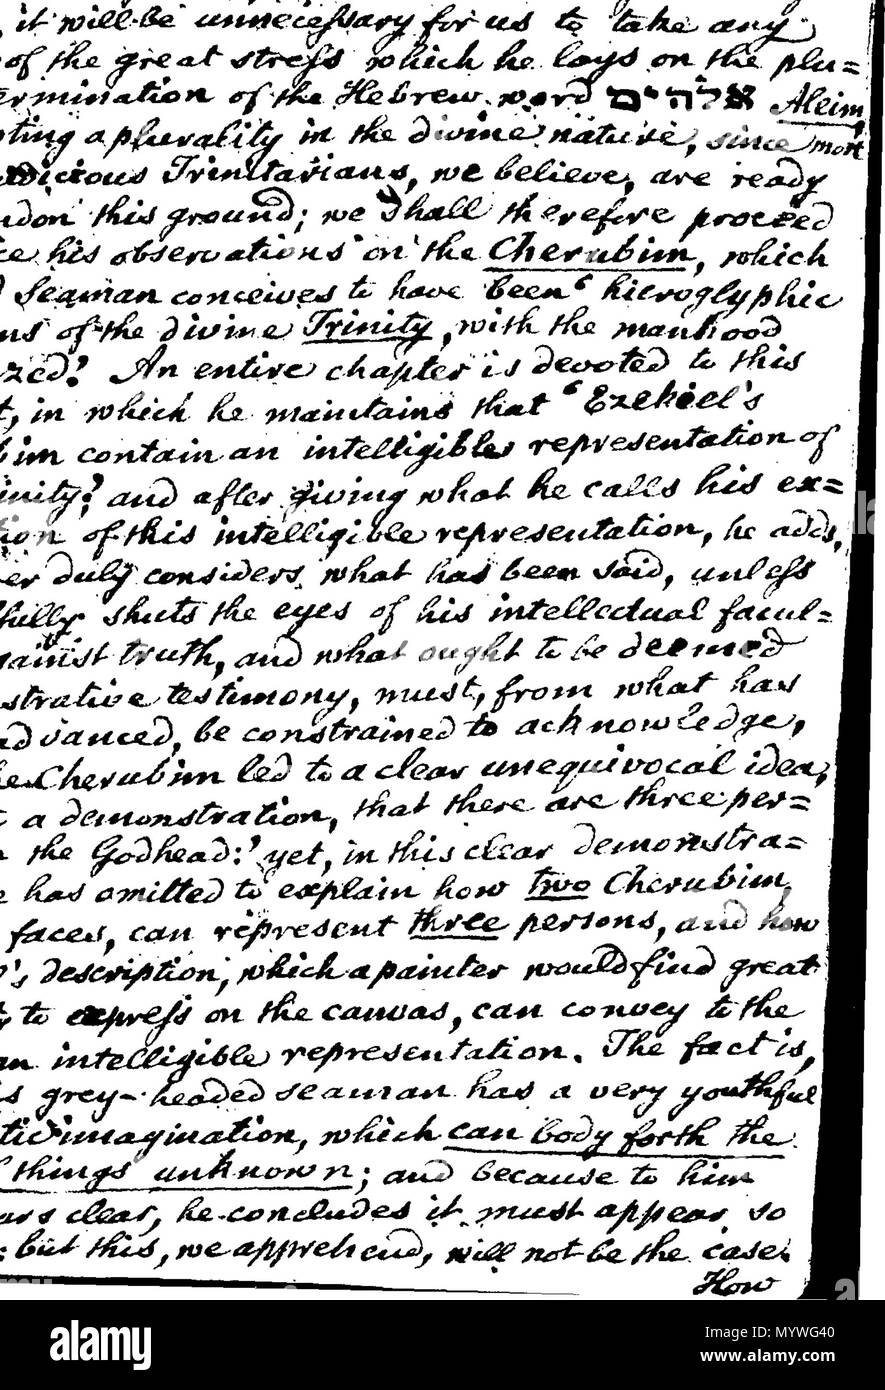 , it will be unnecessary for us to take any
of the great stress which he lays on the plu=
ermination of the Hebrew word אלהים Aleim,
oting a plurality in the divine nature, since most
udicious Trinitarians, we believe, are ready
ndon this ground; we shall therefore proceed
ce his observations on the Cherubim, which
Seaman conceives to have been ‘hieroglyphic
ms of the divine Trinity, with the manhood
zed.’ An entire chapter is devoted to this
t, in which he maintains that ‘Ezekiel's
bim contain an intelligible representation of
inity;’ and after giving what he calls his ex=
tion of this intelligible representation, he adds,
er duly considers what has been said, unless
fully shuts the eyes of his intellectual facul=
gainst truth, and what ought to be deemed
strative testimony, must, from what has
advanced, be constrained to acknowledge,
he Cherubim led to a clear unequivocal idea,
t a demonstration, that there are three per=
n the Godhead:’ yet, in this clear demonstra=
e has omitted to explain how two Cherubim,
faces, can represent three persons, and how
's description, which a painter would find great
to express on the canvas, can convey to the
an intelligible representation. The fact is,
is grey-headed seaman has a very youthful
tic imagination, which can body forth the
f things unknown; and because to him
ars clear, he concludes it must appear so
: but this, we apprehend, will not be the case.
How
alamy
Image ID: MYWG40
www.alamy.com